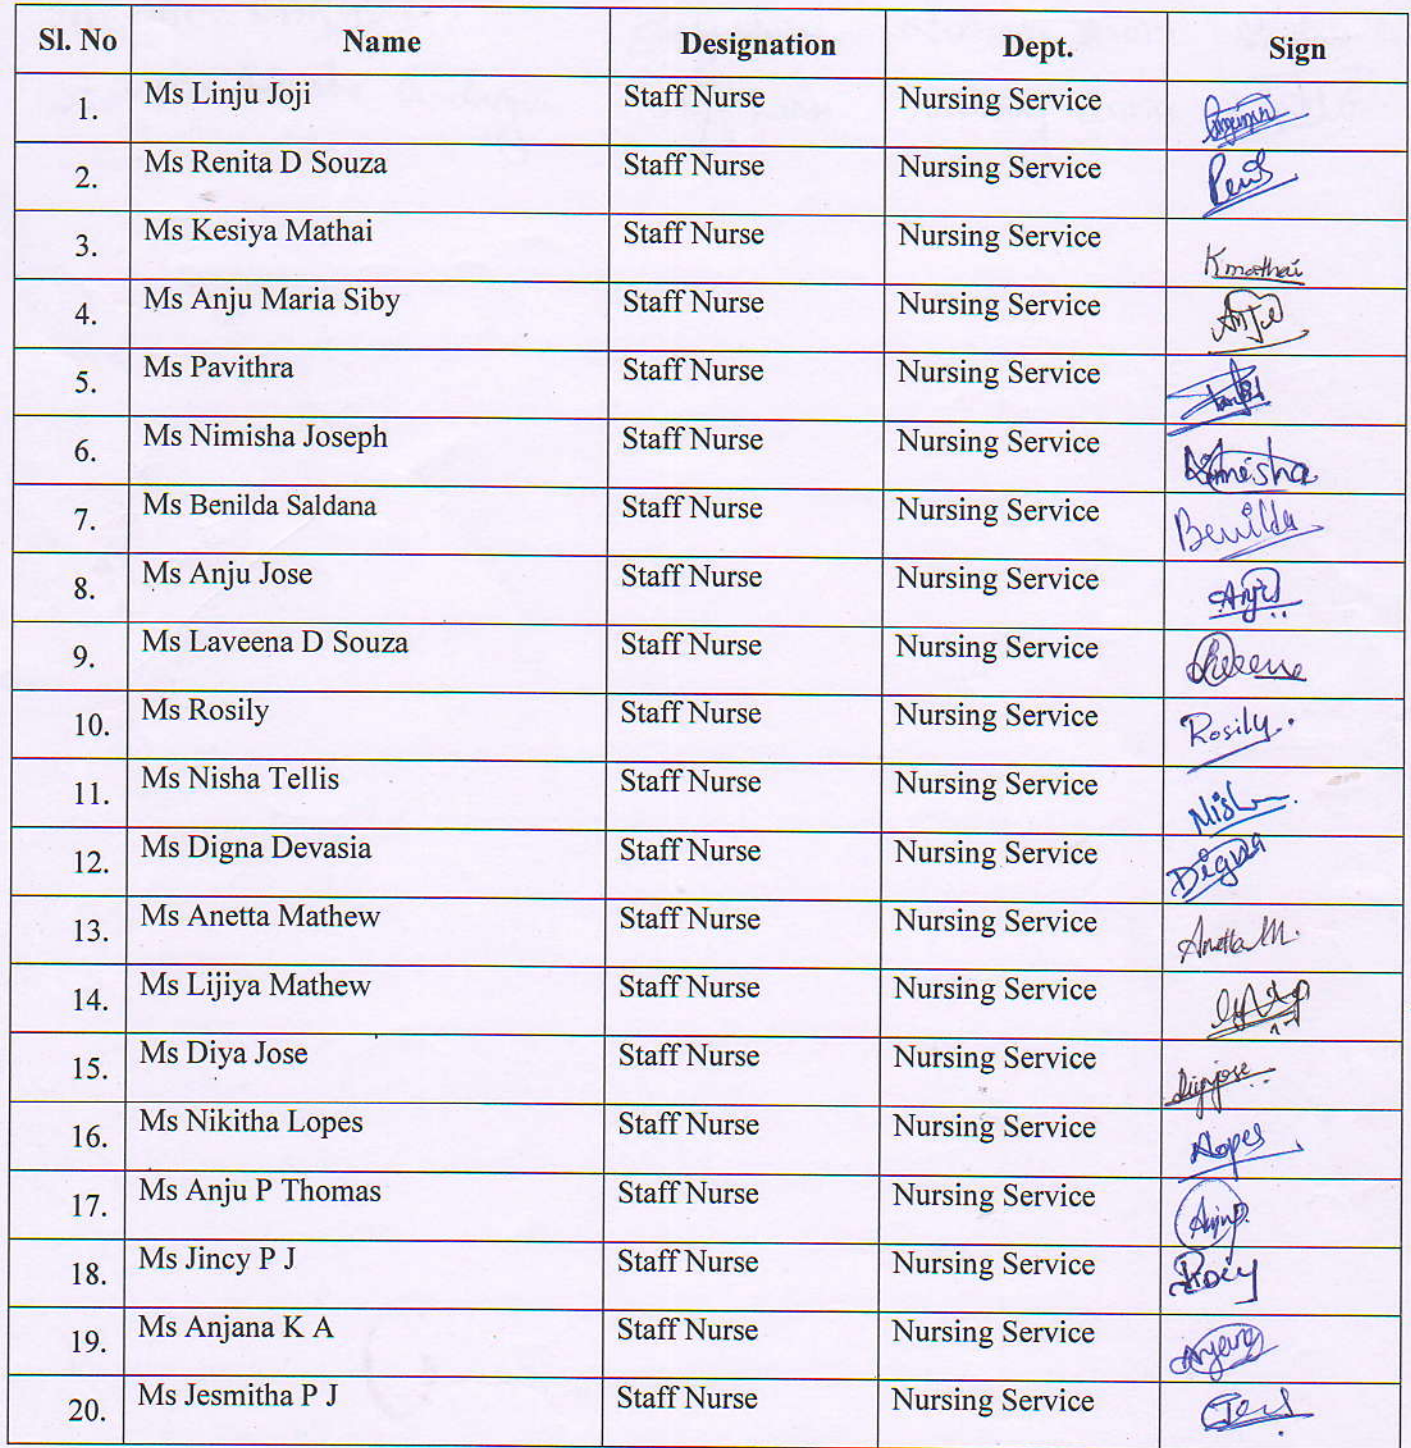 Sl. No Name Designation Dept. Sign
1. Ms Linju Joji Staff Nurse Nursing Service
2. Ms Renita D Souza Staff Nurse Nursing Service
3. Ms Kesiya Mathai Staff Nurse Nursing Service Kmathai
4. Ms Anju Maria Siby Staff Nurse Nursing Service Anju
5. Ms Pavithra Staff Nurse Nursing Service
6. Ms Nimisha Joseph Staff Nurse Nursing Service Nimisha
7. Ms Benilda Saldana Staff Nurse Nursing Service Benilda
8. Ms Anju Jose Staff Nurse Nursing Service Anju
9. Ms Laveena D Souza Staff Nurse Nursing Service
10. Ms Rosily Staff Nurse Nursing Service Rosily
11. Ms Nisha Tellis Staff Nurse Nursing Service Nisha
12. Ms Digna Devasia Staff Nurse Nursing Service Digna
13. Ms Anetta Mathew Staff Nurse Nursing Service Anetta M.
14. Ms Lijiya Mathew Staff Nurse Nursing Service
15. Ms Diya Jose Staff Nurse Nursing Service Diyajose
16. Ms Nikitha Lopes Staff Nurse Nursing Service Lopes
17. Ms Anju P Thomas Staff Nurse Nursing Service
18. Ms Jincy P J Staff Nurse Nursing Service
19. Ms Anjana K A Staff Nurse Nursing Service Anjana
20. Ms Jesmitha P J Staff Nurse Nursing Service